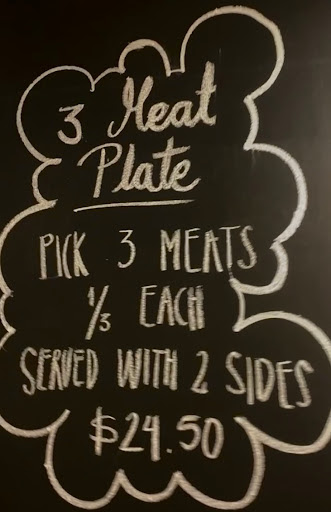 3 Meat
Plate
PICK 3 MEATS
1/3 EACH
SERVED WITH 2 SIDES
$24.50